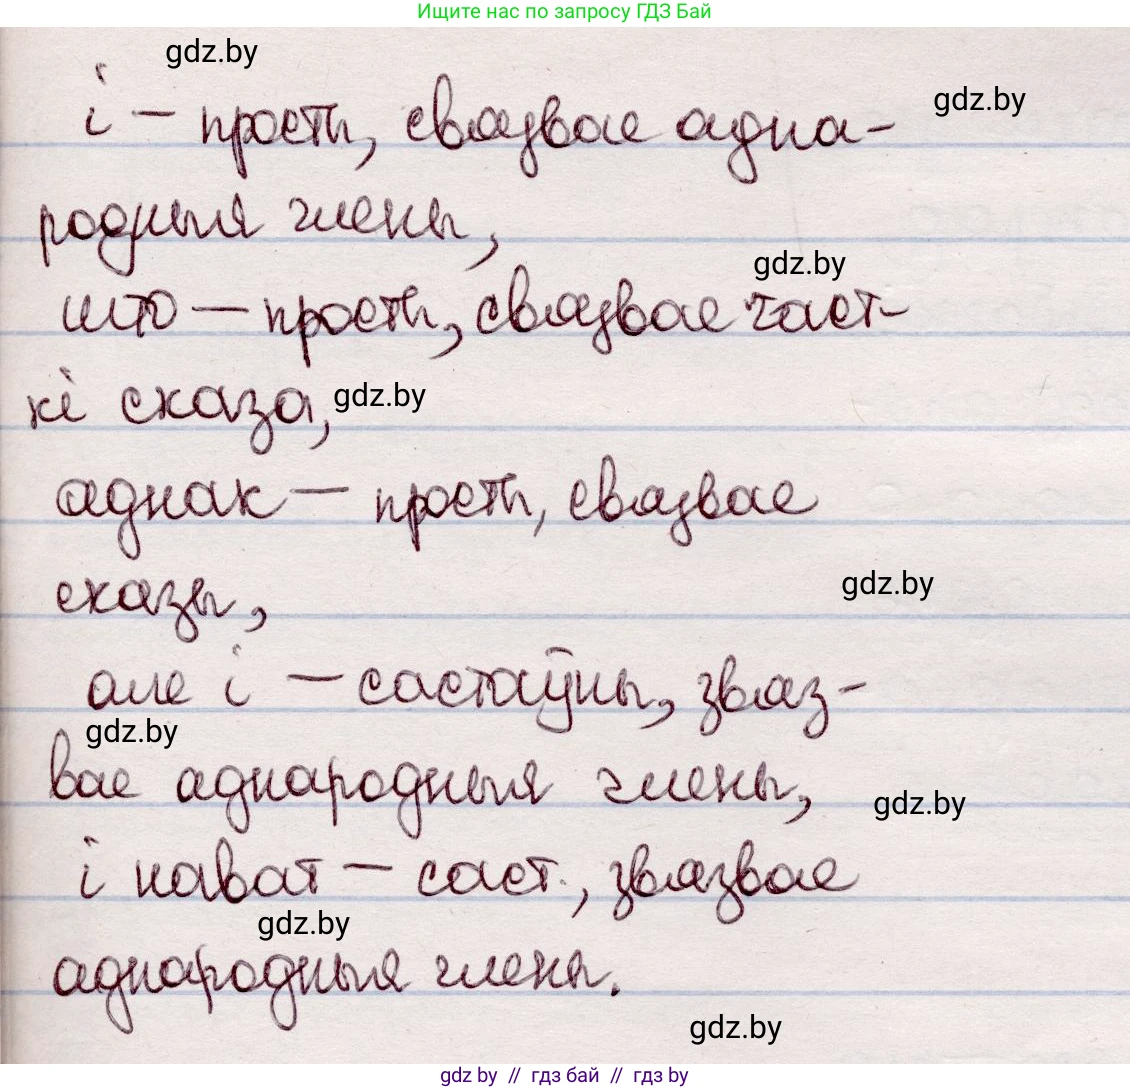 Ищите нас по запросу ГДЗ Бай
gdz.by
і – просты, связвае адна-
gdz.by
родныя члены,
gdz.by
што – просты, связвае част-
кі сказа,
gdz.by
аднак – просты, связвае
gdz.by
сказы,
але і – састаўны, звяз-
gdz.by
вае аднародныя члены,
gdz.by
і нават – саст., звязвае
gdz.by
аднародныя члены.
gdz.by
gdz by // гдз бай // gdz by